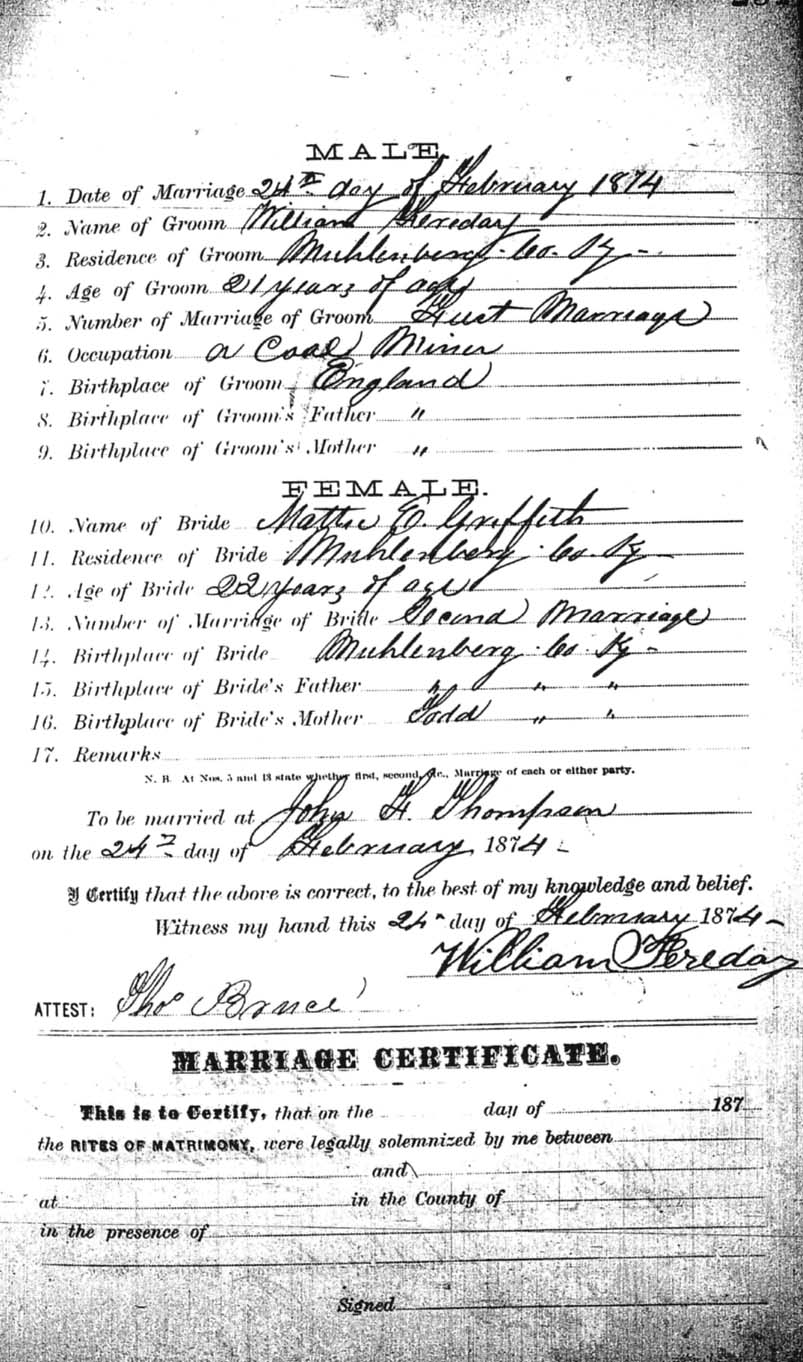 MALE.
1. Date of Marriage 24th day of February 1874
2. Name of Groom William Fereday
3. Residence of Groom Muhlenberg Co. Ky -
4. Age of Groom 21 years of age
5. Number of Marriage of Groom First Marriage
6. Occupation a Coal Miner
7. Birthplace of Groom England
8. Birthplace of Groom's Father "
9. Birthplace of Groom's Mother "
FEMALE.
10. Name of Bride Mattie E. Griffith
11. Residence of Bride Muhlenberg Co. Ky -
12. Age of Bride 22 years of age
13. Number of Marriage of Bride Second Marriage
14. Birthplace of Bride Muhlenberg Co Ky -
15. Birthplace of Bride's Father " " "
16. Birthplace of Bride's Mother Todd " "
17. Remarks
N. B. At Nos. 5 and 13 state whether first, second, &c., Marriage of each or either party.
To be married at John H. Thompson
on the 24th day of February 1874 -
I Certify that the above is correct, to the best of my knowledge and belief.
Witness my hand this 24th day of February 1874 -
William Fereday
ATTEST: Thos Bruce
MARRIAGE CERTIFICATE.
This is to Certify, that on the day of 187
the RITES OF MATRIMONY, were legally solemnized by me between
and
at in the County of
in the presence of
Signed